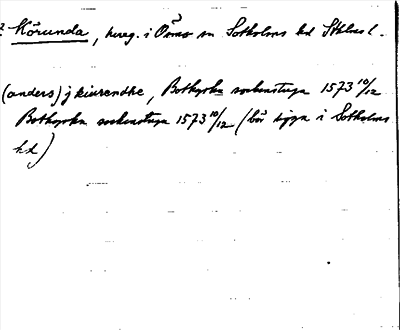 ? Körunda, hereg. i Ösmo sn Sotholms hd Sthlms l.
(anders) j kiurendhe, Botkyrka sockenstuga 1573 10/12
Botkyrka sockenstuga 1573 10/12 (bör sökas i Sotholms
hd)